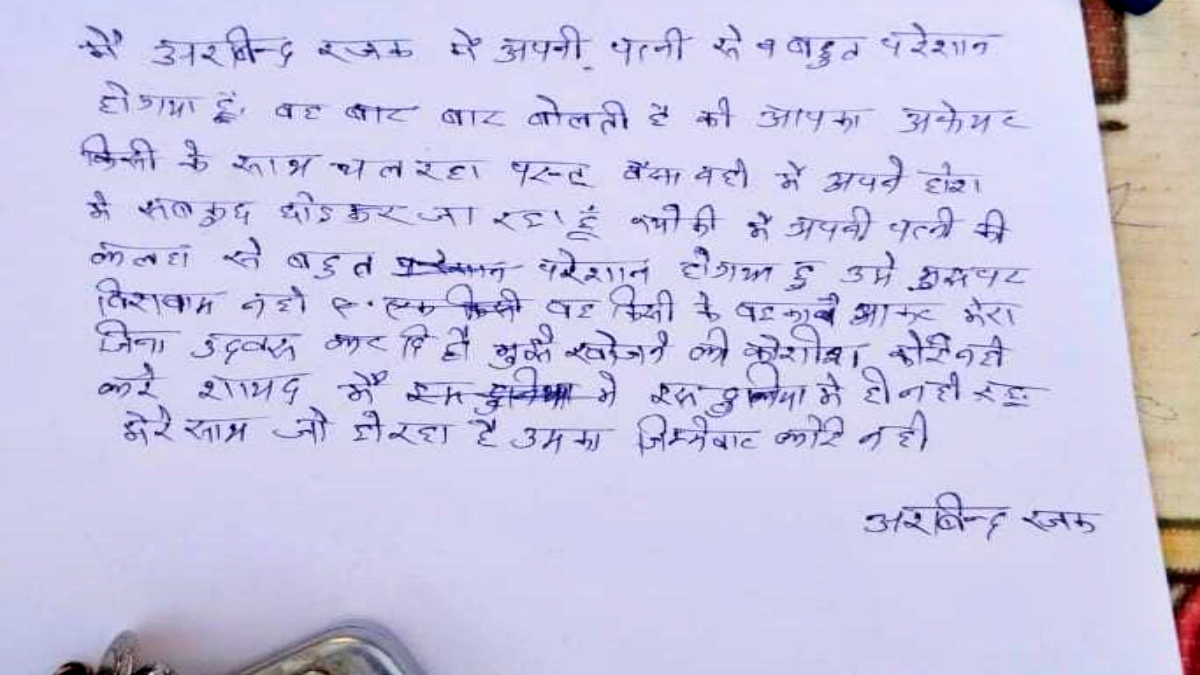 मैं अरबीन्द रजक में अपनी पत्नी से ब बहुत परेशान
हो गया हूं, वह बार बार बोलती है की आपका अफेयर
किसी के साथ चल रहा परन्तु वैसा नही में अपने होश
में सबकुछ छोडकर जा रहा हूँ क्योकी में अपनी पत्नी की
कलहा से बहुत परेशान होगया हु उसे मुझपर
विशवास नही वह किसी के बहकावे आकर मेरा
जिना कर दि है मुझे खोजने की कोशीश कोई नही
करे शायद मैं इस दुनिया मे ही नही रहू
मेरे साथ जो हो रहा है उसका जिम्मेवार कोई नही
अरबीन्द रजक